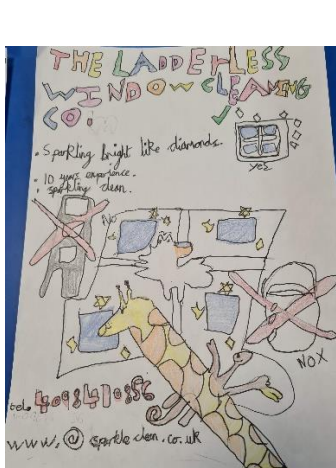 THE LADDERLESS
WINDOW CLEANING
CO.
• Sparkling bright like diamonds.
yes
• 10 years experience.
• sparkling clean.
NO
NO X
www. @ sparkle clean.co.uk